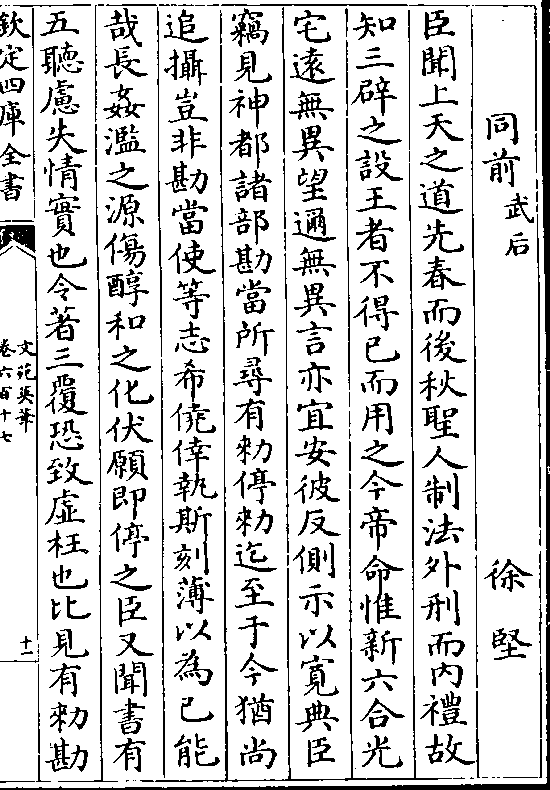 同前武后 徐堅
臣聞上天之道先春而後秋聖人制法外刑而內禮故
知三辟之設王者不得已而用之今帝命惟新六合光
宅遠無異望邇無異言亦宜安彼反側示以寛典臣
竊見神都諸部勘當所尋有勑停勑迄至于今猶尚
追攝豈非勘當使等志希僥倖執斯刻薄以為已能
哉長姦濫之源傷醇和之化伏願即停之臣又聞書有
五聽慮失情實也令著三覆恐致虛枉也比見有勑勘
欽定四庫全書
文苑英華
卷六百十七
十一